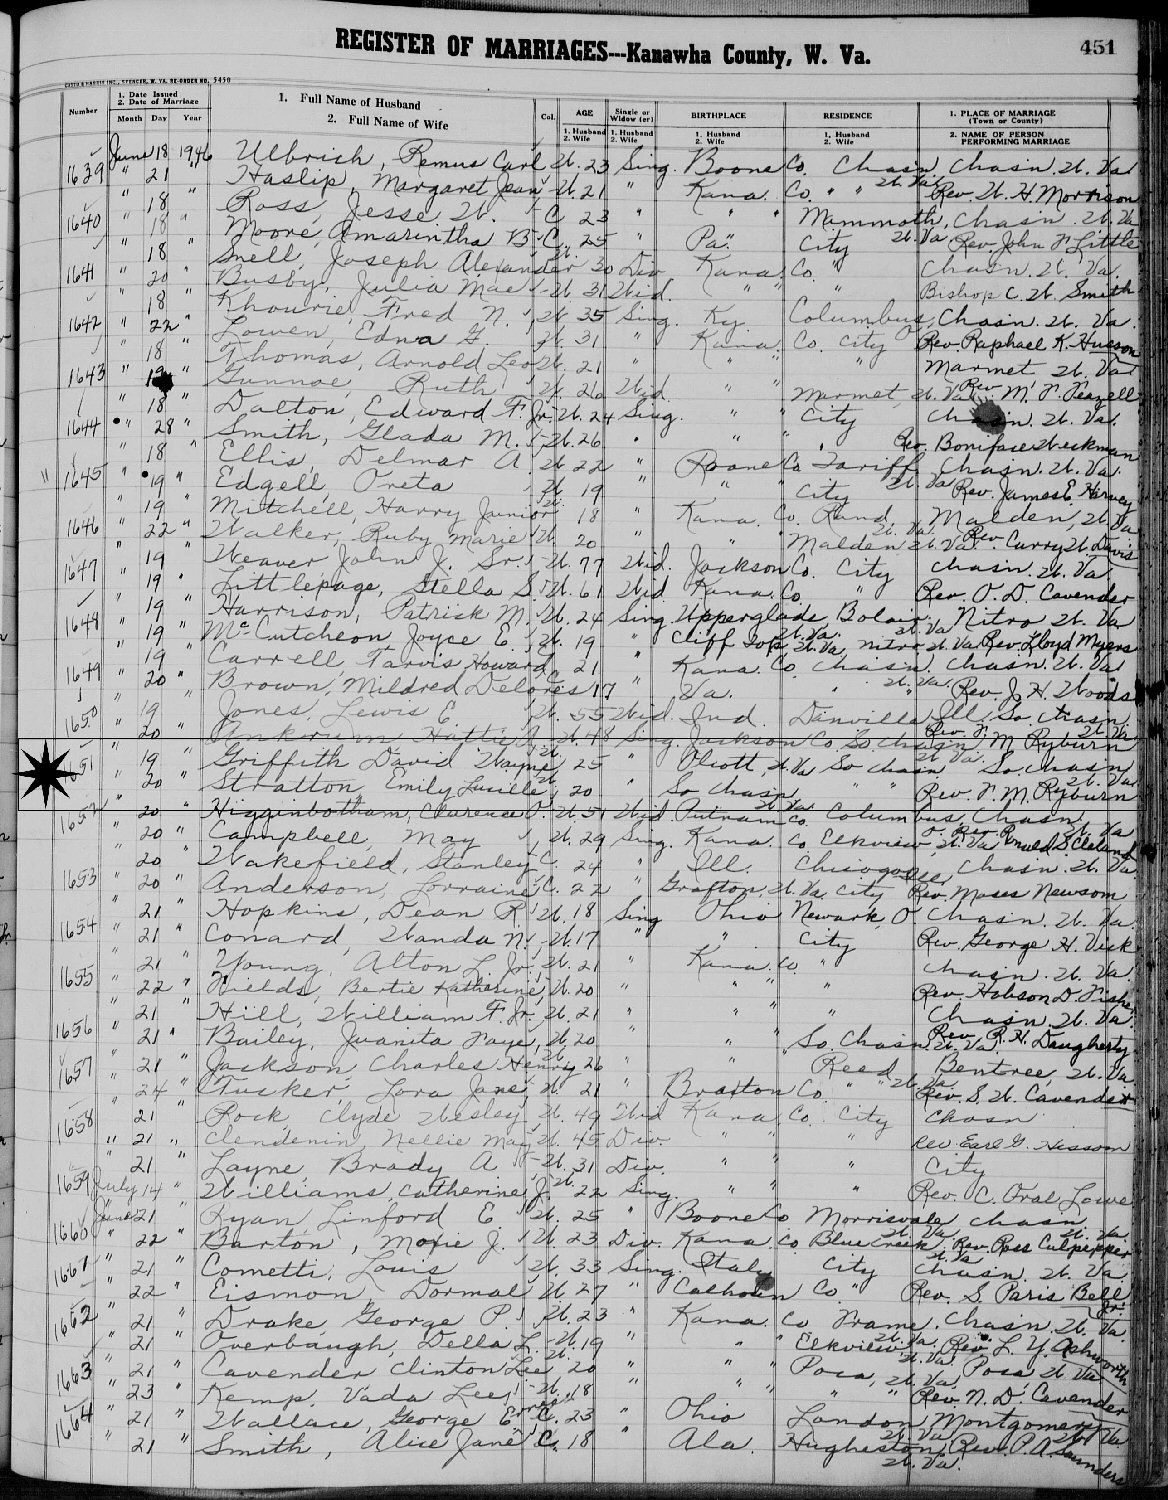 REGISTER OF MARRIAGES---Kanawha County, W. Va. 451
CASTO & HARRIS INC., SPENCER, W. VA. RE-ORDER NO. 5450
Number 1. Date Issued 2. Date of Marriage Month Day Year 1. Full Name of Husband 2. Full Name of Wife Col. AGE 1. Husband 2. Wife Single or Widow (er) 1. Husband 2. Wife BIRTHPLACE 1. Husband 2. Wife RESIDENCE 1. Husband 2. Wife 1. PLACE OF MARRIAGE (Town or County) 2. NAME OF PERSON PERFORMING MARRIAGE
1639 June 18 1946 Ulbrich, Remus Carl W. 23 Sing. Boone Co. Chasn, W. Va. Chasn W. Va
" 21 " Haslip, Margaret Jean W. 21 " Kana. Co. " " Rev. W. H. Morrison
1640 " 18 Ross, Jesse W. C 23 " " " Mammoth, W. Va. Chasn. W. Va
" 18 " Moore, Amarintha B. C. 25 " Pa. City Rev. John F. Little
1641 " 18 Snell, Joseph Alexander W. 30 Div. Kana. Co. " Chasn. W. Va.
" 20 " Busby, Julia Mae W 31 Wid. " " " Bishop C. W. Smith
1642 " 18 Khourie, Fred N. W. 35 Sing. Ky. Columbus, O Chasn. W. Va.
" 22 " Lowen, Edna G. W. 31 " Kana. Co. City Rev. Raphael K. Husson
1643 " 18 Thomas, Arnold Leo W. 21 " " " Marmet W. Va
" 19 " Gunnoe, Ruth W. 26 Wid. " " Marmet, W. Va Rev. M. F. Feazell
1644 " 18 " Dalton, Edward F. Jr. W. 24 Sing. " " City Chasn. W. Va.
" 28 " Smith, Glada M. W. 26 " " " " Rev. Boniface Weckman
1645 " 18 Ellis, Delmar A. W. 22 " Roane Co. Tariff W. Va Chasn. W. Va.
" 19 " Edgell, Oreta W. 19 " " " City Rev. James E. Harvey
1646 " 19 Mitchell, Harry Junior W. 18 " Kana. Co. Rand, W. Va. Malden, W. Va
" 22 " Walker, Ruby Marie W. 20 " " Malden W. Va. Rev. Curry W. Davis
1647 " 19 Weaver John J. Sr. W. 77 Wid. Jackson Co. City Chasn. W. Va
" 19 " Littlepage, Stella S. W. 61 Wid Kana. Co " Rev. O. D. Cavender
1648 " 19 Harrison, Patrick M. W. 24 Sing Upperglade, W. Va. Bolair, W. Va Nitro W. Va
" 19 " McCutcheon Joyce E. W. 19 " Cliff Top, W. Va, Nitro W. Va Rev. Lloyd Myers
1649 " 19 Carrell, Tarvis Howard C. 21 " Kana. Co. Chasn, W. Va. Chasn. W. Va
" 20 " Brown, Mildred Delores 17 " Va. " " Rev. J. H. Woods
1650 " 19 Jones, Lewis E. W. 55 Wid. Ind. Danville Ill. So. Chasn. W. Va
" 20 " Ankrum, Hattie W. 48 Sing. Jackson Co. So Chasn W. Va. Rev. F. M. Ryburn
1651 " 19 Griffith David Wayne W. 25 " Olcott, W. Va So Chasn So. Chasn W. Va.
" 20 " Stratton, Emily Lucille W 20 " So Chasn, W. Va. " " Rev. F. M. Ryburn
1652 " 20 " Higginbotham, Clarence O. W. 51 Wid Putnam Co. Columbus, O. Chasn, W. Va
" 20 " Campbell, May W. 29 Sing. Kana. Co. Elkview, W. Va Rev. Ronald S. Cleland
1653 " 20 Wakefield, Stanley C. 24 " Ill. Chicago Ill. Chasn. W. Va.
" 20 " Anderson, Lorraine C. 22 " Grafton, W. Va. City Rev. Moses Newsom
1654 " 21 " Hopkins, Dean R. W. 18 Sing Ohio Newark, O Chasn. W. Va.
" 21 " Conard, Wanda N. W. 17 " " City Rev. George H. Vick
1655 " 21 Young, Alton L. Jr. W. 21 " Kana. Co. " Chasn. W. Va.
" 22 " Fields, Bertie Katherine W. 20 " " " " Rev. Hobson D. Fisher
1656 " 21 Hill, William F. Jr. W. 21 " " " Chasn W. Va.
" 21 " Bailey, Juanita Faye, W. 20 " " So. Chasn, W. Va. Rev. R. H. Daugherty
1657 " 21 Jackson Charles Henry W. 26 " " Reed W. Va. Bentree, W. Va.
" 24 " Tucker, Lora Jane W 21 " Braxton Co. " " Rev. S. W. Cavender
1658 " 21 Rock, Clyde Wesley W. 49 Wid Kana. Co. City Chasn
" 21 " Clendenin, Nellie May W. 45 Div. " " " Rev. Earl G. Hissom
1659 " 21 Layne, Brady A W. 31 Div. " " " City
July 14 " Williams, Catherine J. W. 22 Sing. " " " Rev. C. Oral Lowe
1660 June 21 Ryan Linford E. W. 25 " Boone Co Morrisvale W. Va Chasn. W. Va.
" 22 " Barton, Moxie J. W. 23 Div. Kana. Co Blue Creek, W. Va Rev. Ross Culpepper
1661 " 21 Cometti, Louis W. 33 Sing. Italy City Chasn. W. Va.
" 22 " Eismon, Dormal W. 27 " Calhoun Co. " Rev. S. Paris Bell Jr.
1662 " 21 " Drake, George P. W. 23 " Kana. Co Frame, W. Va. Chasn. W. Va.
" 21 Overbaugh, Della L. W. 19 " " " Elkview W. Va. Rev. L. Y. Ashworth
1663 " 21 " Cavender Clinton Lee W. 20 " " " Poca, W. Va. Poca W. Va
" 23 " Kemp, Vada Lee W. 18 " " " " " Rev. N. D. Cavender
1664 " 21 " Wallace, George Ernest C. 23 " Ohio London, W. Va. Montgomery W. Va
" 21 " Smith, Alice Jane C. 18 " Ala. Hugheston, W. Va. Rev. P. A. Saunders